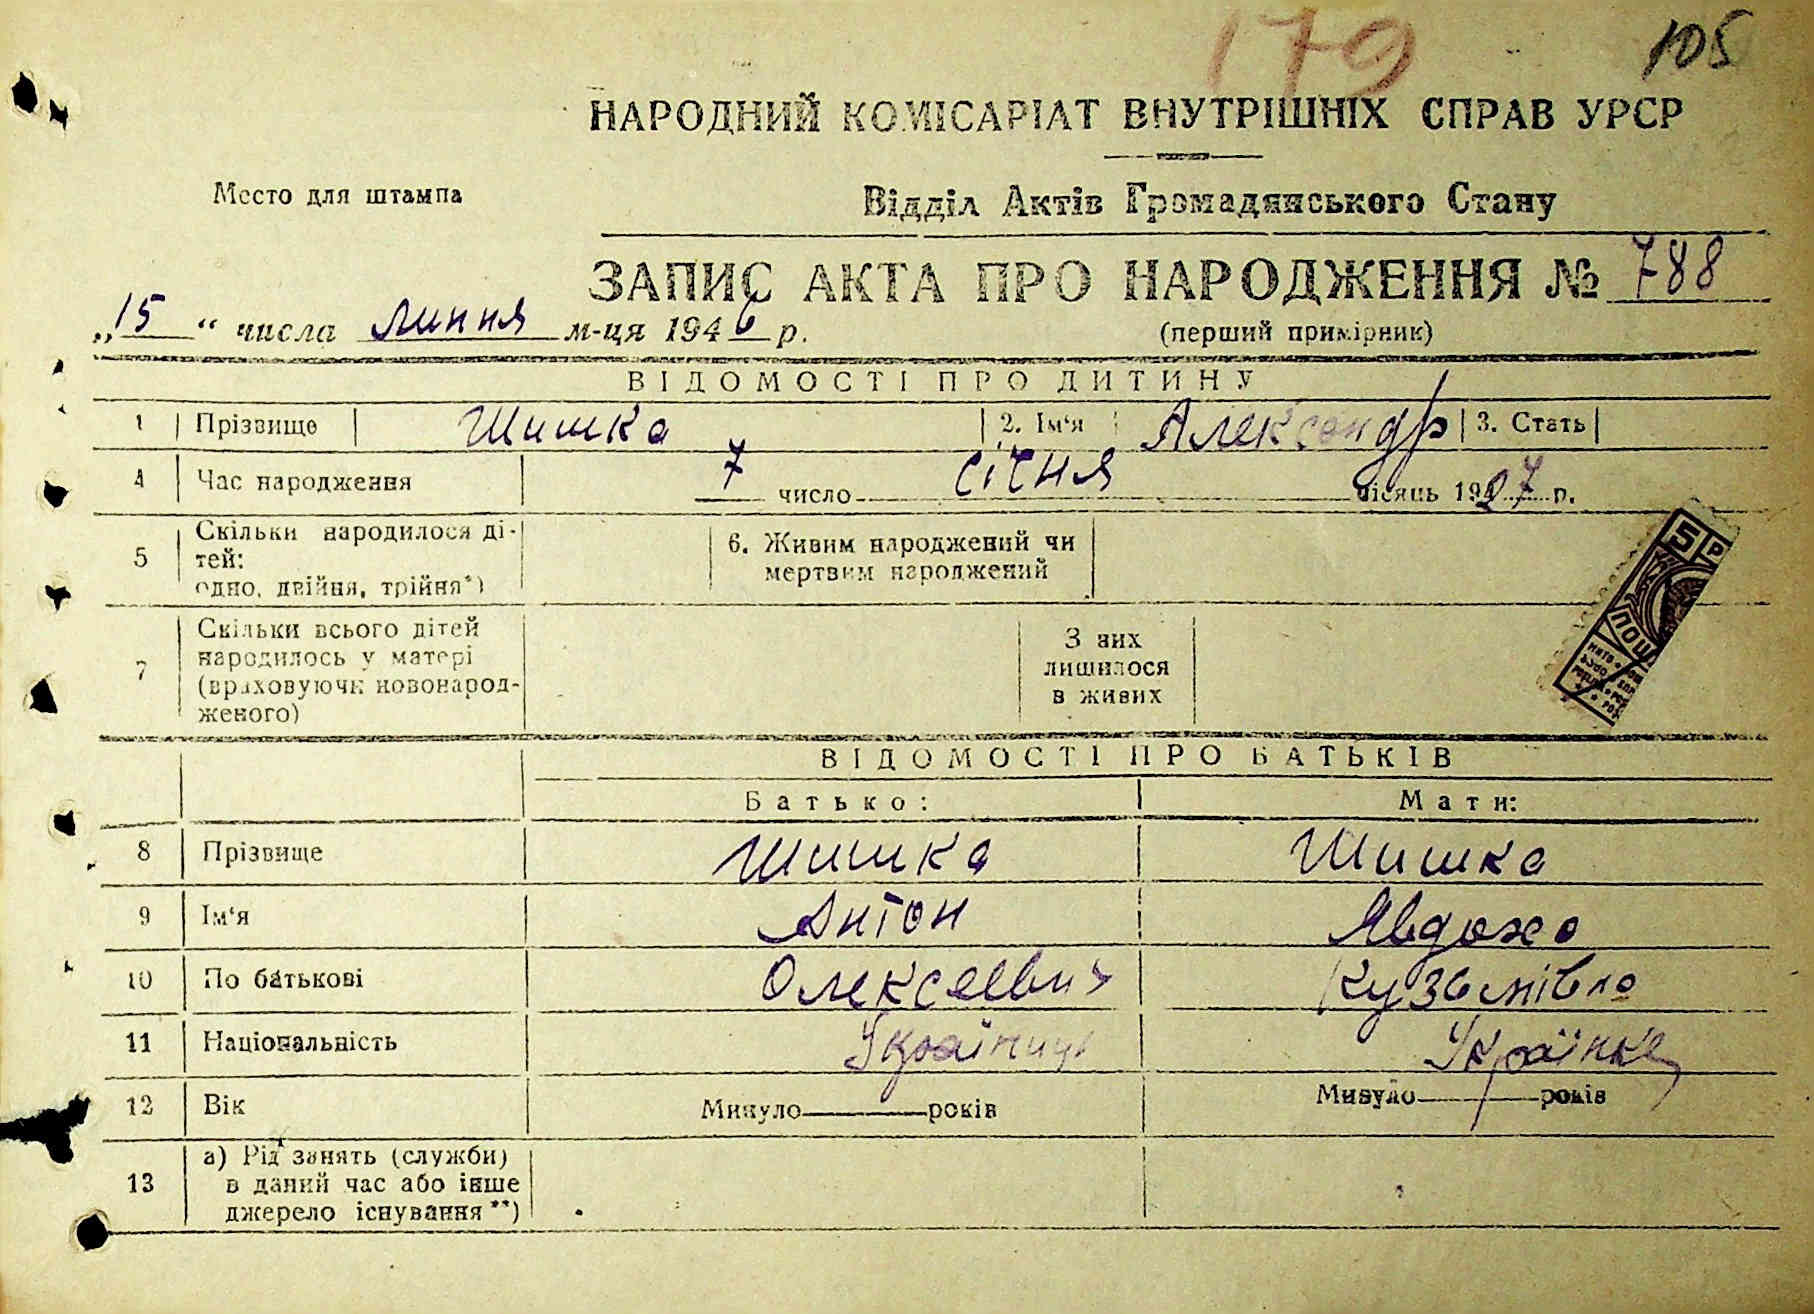 179 105
НАРОДНИЙ КОМІСАРІАТ ВНУТРІШНІХ СПРАВ УРСР
Место для штампа
Відділ Актів Громадянського Стану
ЗАПИС АКТА ПРО НАРОДЖЕННЯ № 788
„15“ числа липня м-ця 1946 р.
(перший примірник)
ВІДОМОСТІ ПРО ДИТИНУ
1 Прізвище Шишка 2. Ім'я Александр 3. Стать
4 Час народження 7 число січня місяць 1927 р.
5 Скільки народилося ді-
тей:
одно, двійня, трійня*)
6. Живим народжений чи
мертвим народжений
7 Скільки всього дітей
народилось у матері
(враховуючи новонарод-
женого)
З них
лишилося
в живих
5 Р
ПОШ
ВІДОМОСТІ ПРО БАТЬКІВ
Батько: Мати:
8 Прізвище Шишка Шишка
9 Ім'я Антон Явдоха
10 По батькові Олексеевич Кузьмівна
11 Національність Українць Українка
12 Вік Минуло років Минуло років
13 а) Рід занять (служби)
в даний час або інше
джерело існування**)